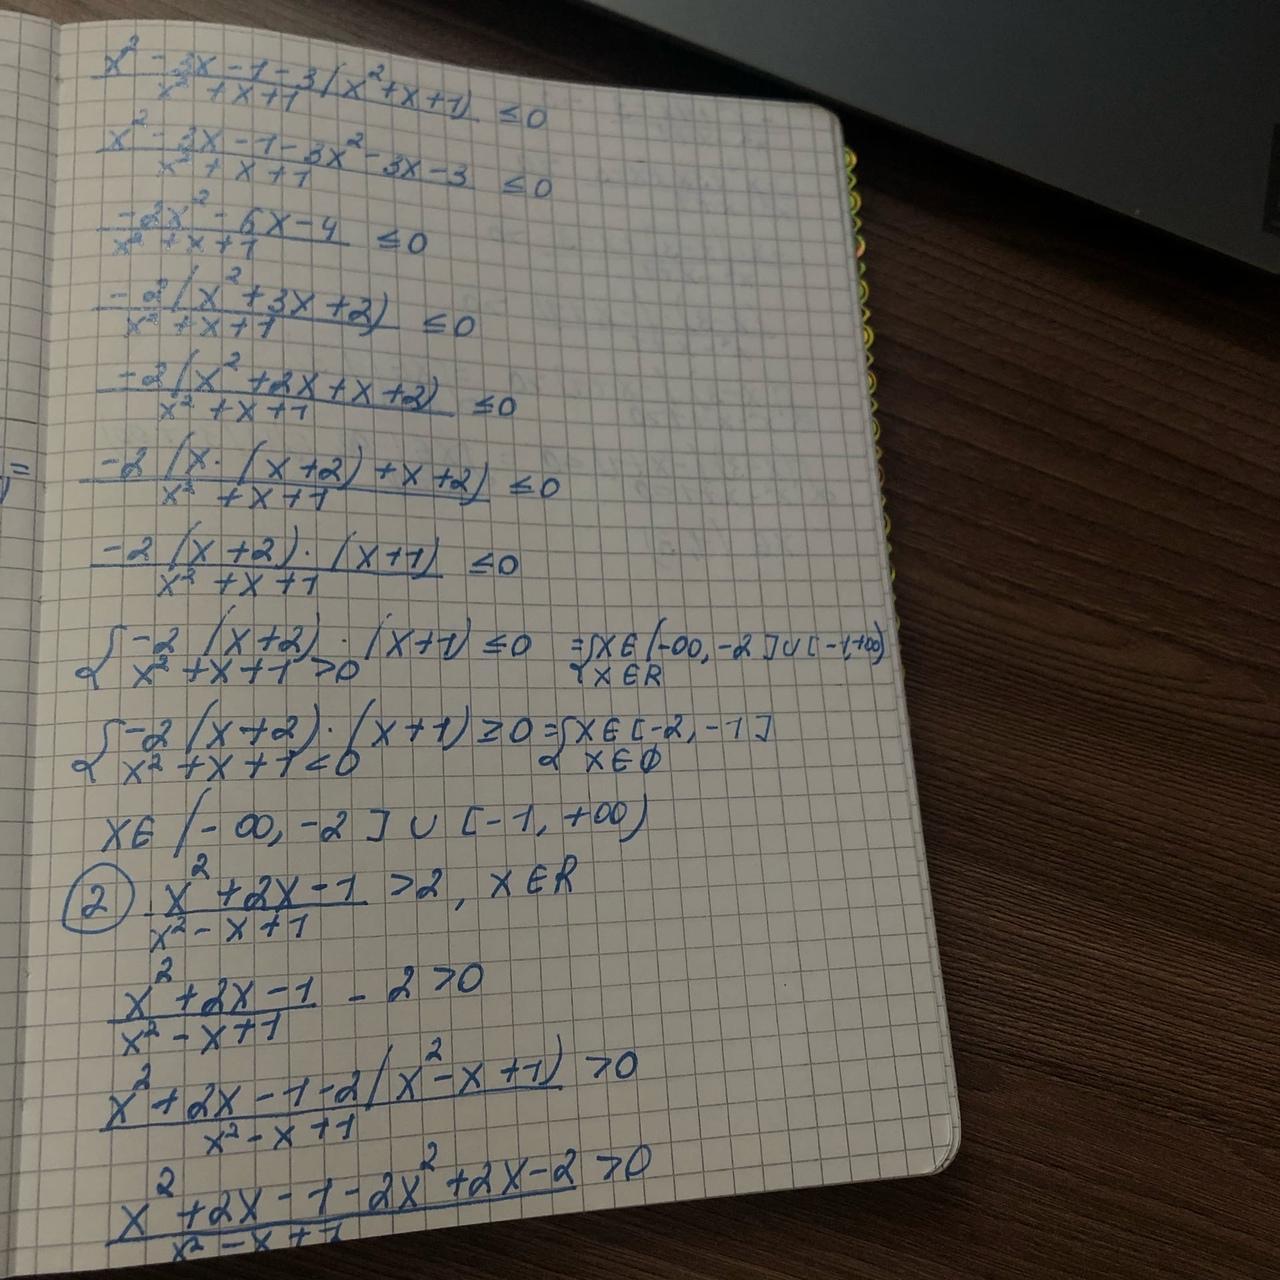 x² - 3x - 1 - 3(x² + x + 1) / x² + x + 1 ≤ 0
x² - 3x - 1 - 3x² - 3x - 3 / x² + x + 1 ≤ 0
-2x² - 6x - 4 / x² + x + 1 ≤ 0
-2(x² + 3x + 2) / x² + x + 1 ≤ 0
-2(x² + 2x + x + 2) / x² + x + 1 ≤ 0
=
-2(x · (x + 2) + x + 2) / x² + x + 1 ≤ 0
-2(x + 2) · (x + 1) / x² + x + 1 ≤ 0
{ -2(x + 2) · (x + 1) ≤ 0 = { x ∈ (-∞, -2] ∪ [-1, +∞)
x² + x + 1 > 0 x ∈ R
{ -2(x + 2) · (x + 1) ≥ 0 = { x ∈ [-2, -1]
x² + x + 1 < 0 x ∈ ∅
x ∈ (-∞, -2] ∪ [-1, +∞)
② x² + 2x - 1 / x² - x + 1 > 2, x ∈ R
x² + 2x - 1 / x² - x + 1 - 2 > 0
x² + 2x - 1 - 2(x² - x + 1) / x² - x + 1 > 0
x² + 2x - 1 - 2x² + 2x - 2 / x² - x + 1 > 0